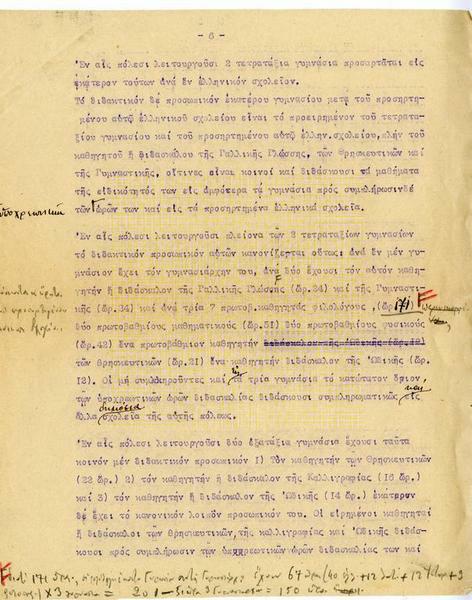 - 6 -
Ἐν αἷς πόλεσι λειτουργοῦσι 2 τετρατάξια γυμνάσια προσαρτᾶται εἰς
ἑκάτερον τούτων ἀνά ἕν ἑλληνικόν σχολεῖον.
Τό διδακτικόν δέ προσωπικόν ἑκατέρου γυμνασίου μετά τοῦ προσηρτη-
μένου αὐτῷ ἑλληνικοῦ σχολείου εἶναι τό προειρημένον τοῦ τετρατα-
ξίου γυμνασίου καί τοῦ προσηρτημένου αὐτῷ ἑλλην.σχολείου,πλήν τοῦ
καθηγητοῦ ἤ διδασκάλου τῆς Γαλλικῆς Γλώσσης, τῶν Θρησκευτικῶν καί
τῆς Γυμναστικῆς, οἵτινες εἶναι κοινοί καί διδάσκουσι τά μαθήματα
τῆς εἰδικότητός των εἰς ἀμφότερα τά γυμνάσια πρός συμπλήρωσινδέ
τῶν ὡρῶν των καί εἰς τά προσηρτημένα ἑλληνικά σχολεῖα.
ὑποχρεωτικῶν
Ἐν αἷς πόλεσι λειτουργοῦσι πλείονα τῶν 2 τετραταξίων γυμνασίων
τό διδακτικόν προσωπικόν αὐτῶν κανονίζεται οὕτως: ἀνά ἕν μέν γυ-
μνάσιον ἔχει τόν γυμνασιάρχην του, ἀνά δύο ἔχουσι τόν αὐτόν καθη-
γητήν ἤ διδάσκαλον τῆς Γαλλικῆς Γλώσσης (ὡρ.24) καί τῆς Γυμναστι-
κῆς (ὡρ.24) καί ἀνά τρία 7 πρωτοβ.καθηγητάς φιλολόγους , (ὡρ. 171)
δύο πρωτοβαθμίους μαθηματικούς (ὡρ.51) δύο πρωτοβαθμίους φυσικούς
(ὡρ.42) ἕνα πρωτοβάθμιον καθηγητήν διδάσκαλον τῆς Ὠδικῆς (ὡρ.12)
τῶν θρησκευτικῶν (ὡρ.21) ἕνα καθηγητήν διδάσκαλον τῆς Ὠδικῆς (ὡρ.
12). Οἱ μή συμπληροῦντες καί εἰς τά τρία γυμνάσια τό κατώτατον ὅριον
τῶν ὑποχρεωτικῶν ὡρῶν διδασκαλίας διδάσκουσι συμπληρωματικῶς καί εἰς
ἄλλα δημόσια σχολεῖα τῆς αὐτῆς πόλεως.
Ἐν αἷς πόλεσι λειτουργοῦσι δύο ἑξατάξια γυμνάσια ἔχουσι ταῦτα
κοινόν μέν διδακτικόν προσωπικόν 1) Τόν καθηγητήν τῶν Θρησκευτικῶν
(22 ὡρ.) 2) τόν καθηγητήν ἤ διδάσκαλον τῆς Καλλιγραφίας (16 ὡρ.)
καί 3) τόν καθηγητήν ἤ διδάσκαλον τῆς Ὠδικῆς (14 ὡρ.) ἑκάτερον
δέ ἔχει τό κανονικόν λοιπόν προσωπικόν του. Οἱ εἰρημένοι καθηγηταί
ἤ διδάσκαλοι τῶν θρησκευτικῶν,τῆς καλλιγραφίας καί Ὠδικῆς διδάσ-
κουσι πρός συμπλήρωσιν τῶν ὑποχρεωτικῶν ὡρῶν διδασκαλίας των καί